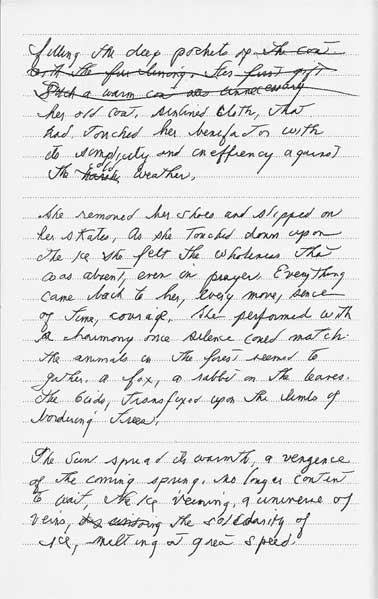 filling the deep pockets of the coat
with the fur lining. Her first gift
Such a warm coat was unnecessary
her old coat, unlined cloth, that
had touched her benefactor with
its simplicity and inefficency against
the cold weather.
She removed her shoes and slipped on
her skates, As she touched down upon
the ice she felt the wholeness that
was absent, even in prayer. Everything
came back to her, every move, sense
of time, courage. She performed with
a harmony once silence could match.
the animals in the forest seemed to
gather. a fox, a rabbit in the leaves.
The birds, transfixed upon the limbs of
bordering trees.
The Sun spread its warmth, a vengence
of the coming spring. no longer content
to wait, the ice veining, a universe of
veins, the solidarity of
ice, melting at great speed.